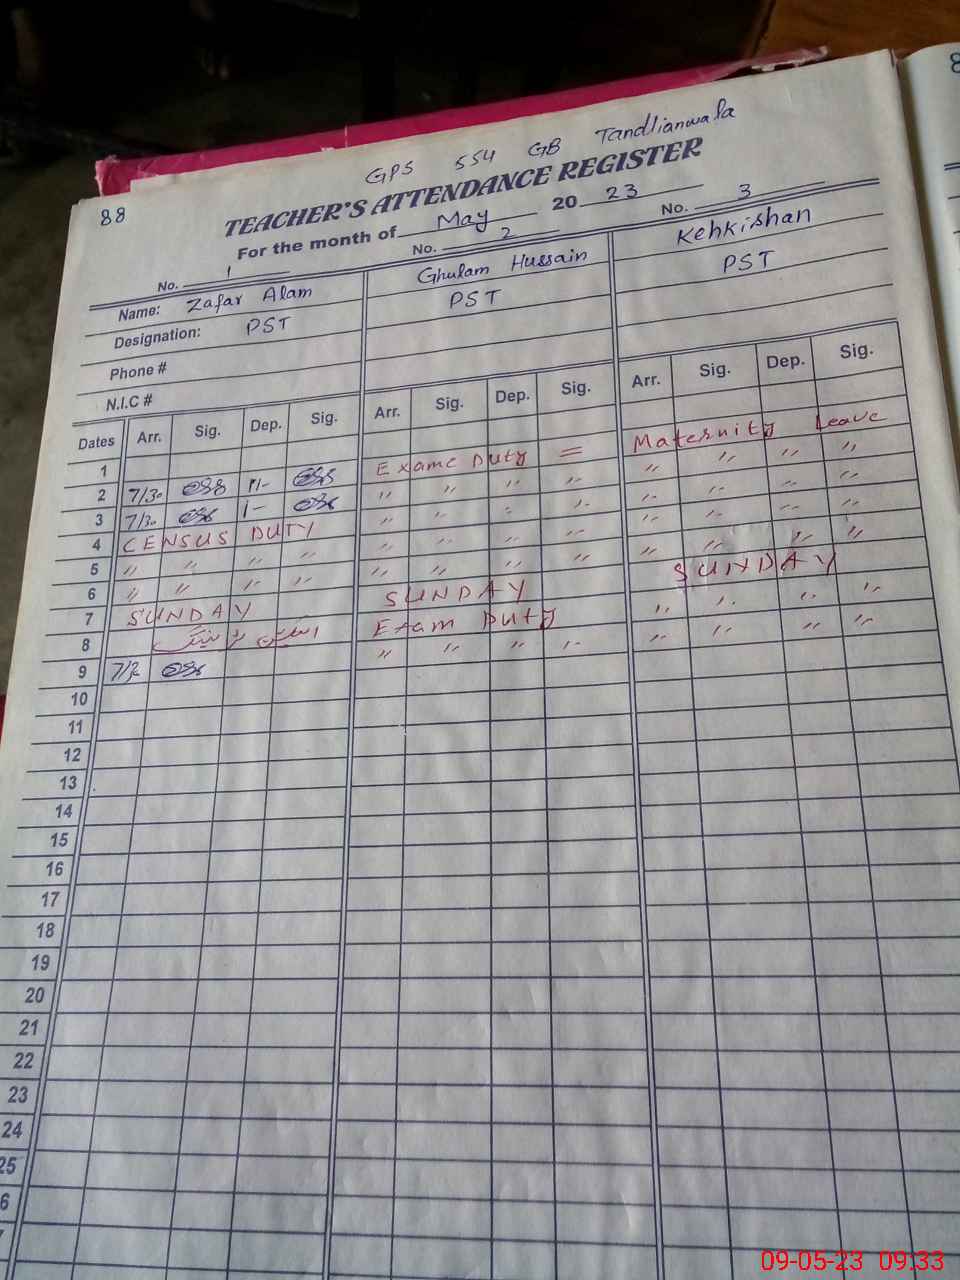 GPS 554 GB Tandlianwala
88
TEACHER'S ATTENDANCE REGISTER
For the month of May 2023
No. 1 No. 2 No. 3
Name: Zafar Alam Ghulam Hussain Kehkishan
Designation: PST PST PST
Phone #
N.I.C #
Dates Arr. Sig. Dep. Sig. Arr. Sig. Dep. Sig. Arr. Sig. Dep. Sig.
1 Exame Duty = Maternity Leave
2 7/30 〃 〃 〃 〃 〃 〃 〃 〃
3 7/30 〃 〃 〃 〃 〃 〃 〃 〃
4 CENSUS DUTY 〃 〃 〃 〃 〃 〃 〃 〃
5 〃 〃 〃 〃 〃 〃 〃 〃 〃 〃 〃 〃
6 〃 〃 〃 〃 SUNDAY SUNDAY
7 SUNDAY Exam Duty 〃 〃 〃 〃
8 〃 〃 〃 〃 〃 〃 〃 〃
9 7/3
10
11
12
13
14
15
16
17
18
19
20
21
22
23
24
25
6
8
09-05-23 09:33